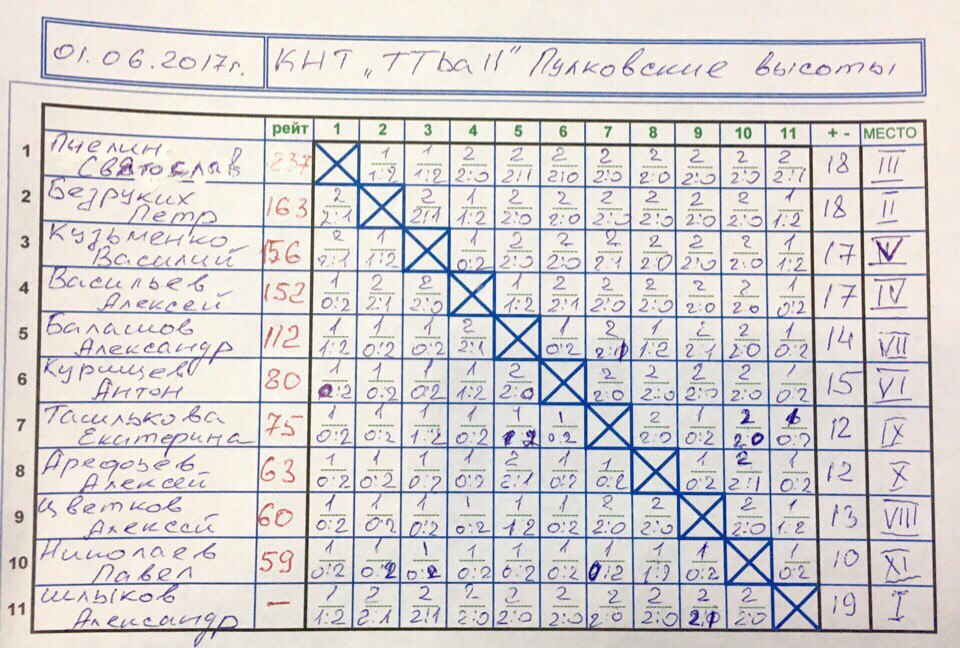 01.06.2017г. КНТ „ТТВа11" Пулковские высоты
рейт 1 2 3 4 5 6 7 8 9 10 11 + - МЕСТО
1 Пчелин 1 1 2 2 2 2 2 2 2 2 18 III
Святослав 237 1:2 1:2 2:0 2:1 2:0 2:0 2:0 2:0 2:0 2:1
2 Безруких 2 2 1 2 2 2 2 2 2 1 18 II
Петр 163 2:1 2:1 1:2 2:0 2:0 2:0 2:0 2:0 2:0 1:2
3 Кузьменко 2 1 1 2 2 2 2 2 2 1 17 V
Василий 156 2:1 1:2 0:2 2:0 2:0 2:1 2:0 2:0 2:0 1:2
4 Васильев 1 2 2 1 2 2 2 2 2 1 17 IV
Алексей 152 0:2 2:1 2:0 1:2 2:1 2:0 2:0 2:0 2:0 0:2
5 Балашов 1 1 1 2 1 2 1 2 2 1 14 VII
Александр 112 1:2 0:2 0:2 2:1 0:2 2:1 1:2 2:1 2:0 0:2
6 Курицев 1 1 1 1 2 2 2 2 2 1 15 VI
Антон 80 0:2 0:2 0:2 1:2 2:0 2:0 2:0 2:0 2:0 0:2
7 Ташлыкова 1 1 1 1 1 1 2 1 2 1 12 IX
Екатерина 75 0:2 0:2 1:2 0:2 1 2 0:2 2:0 0:2 2:0 0:2
8 Арефьев 1 1 1 1 2 1 1 1 2 1 12 X
Алексей 63 0:2 0:2 0:2 0:2 2:1 0:2 0:2 0:2 2:1 0:2
9 Цветков 1 1 1 1 1 1 2 2 2 1 13 VIII
Алексей 60 0:2 0:2 0:2 0:2 1:2 0:2 2:0 2:0 2:0 1:2
10 Николаев 1 1 1 1 1 1 1 1 1 1 10 XI
Павел 59 0:2 0:2 0:2 0:2 0:2 0:2 0:2 1:2 0:2 0:2
11 Шлыков 1 2 2 2 2 2 2 2 2 2 19 I
Александр — 1:2 2:1 2:1 2:0 2:0 2:0 2:0 2:0 2:1 2:0